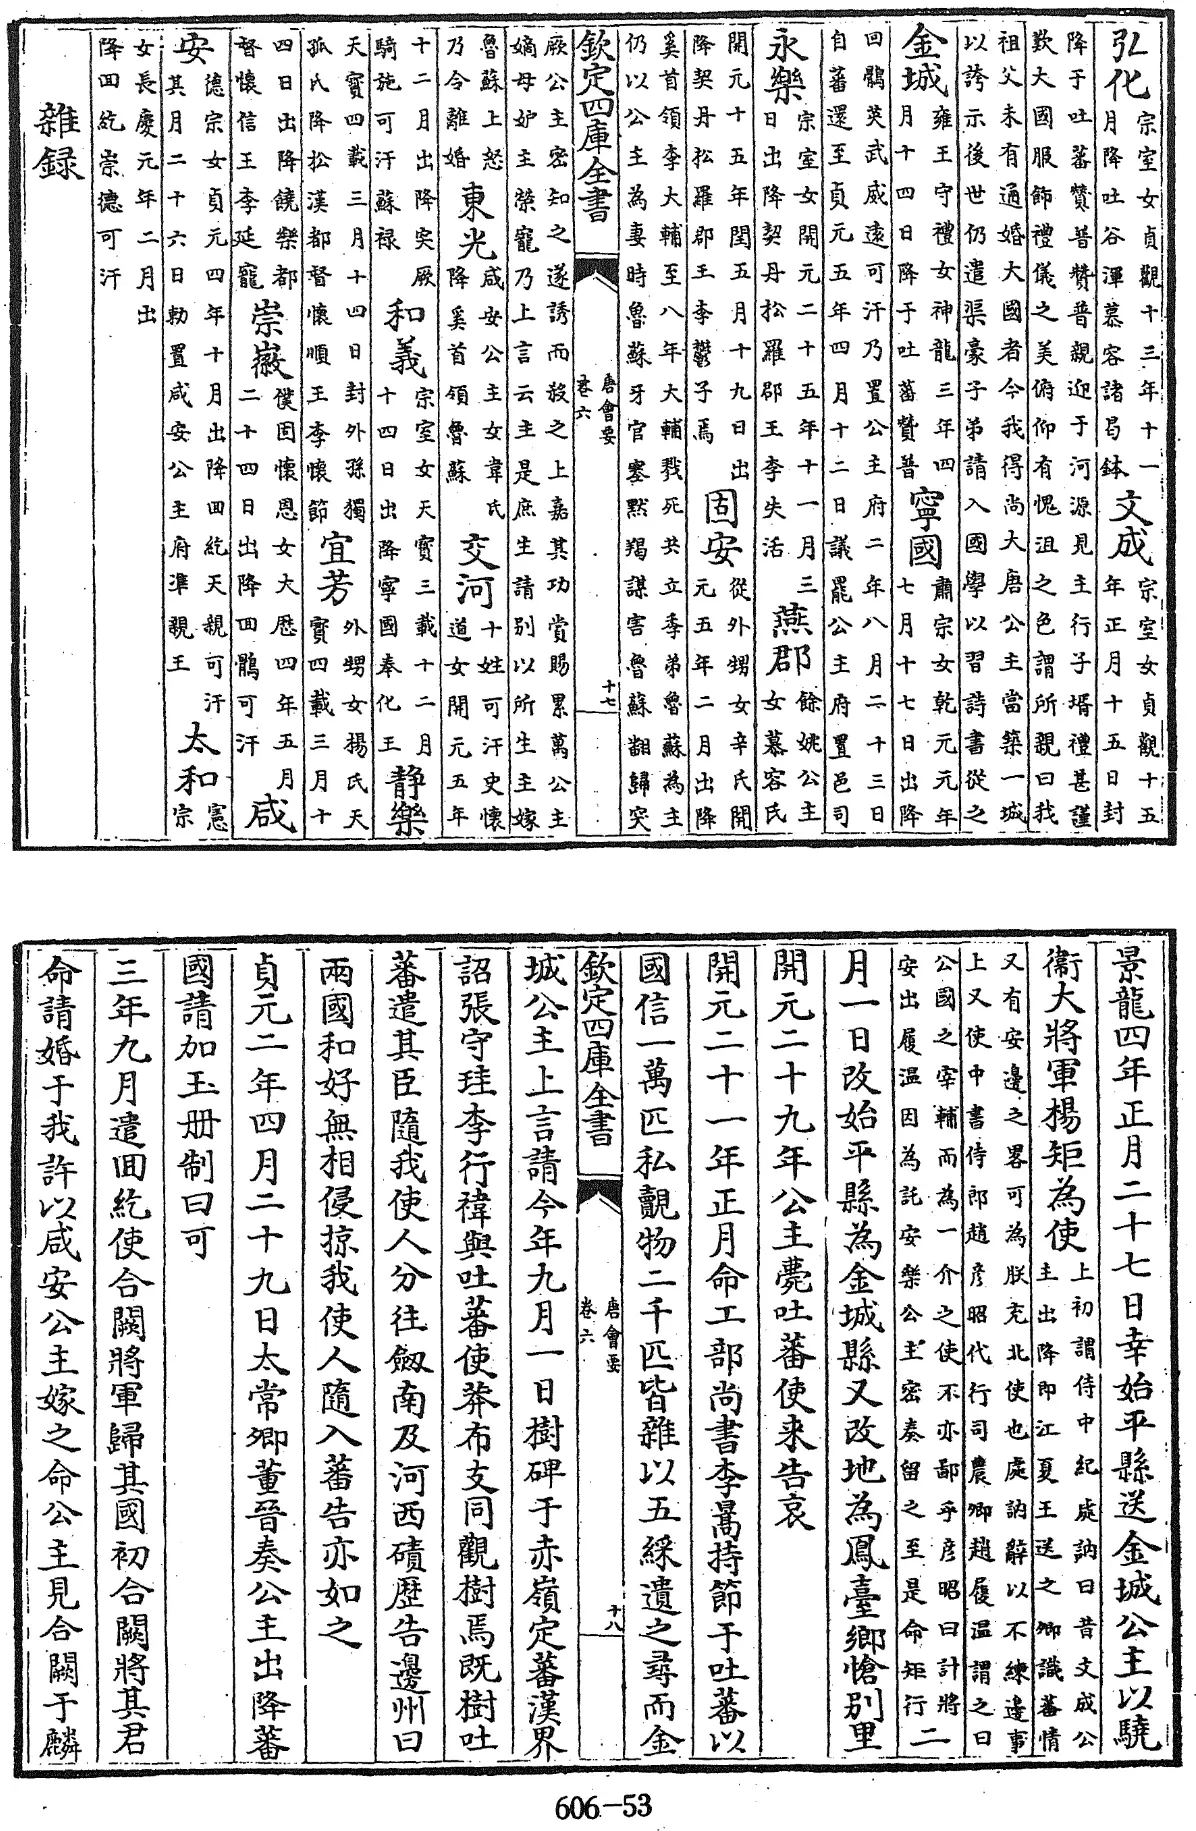 弘化宗室女貞觀十三年十一月降吐谷渾慕容諸曷鉢文成宗室女貞觀十五年正月十五日封
降于吐蕃贊普贊普親迎于河源見主行子壻禮甚謹
歎大國服飾禮儀之美俯仰有愧沮之色謂所親曰我
祖父未有通婚大國者今我得尚大唐公主當築一城
以誇示後世仍遣渠豪子弟請入國學以習詩書從之
金城雍王守禮女神龍三年四月十四日降于吐蕃贊普寧國肅宗女乾元元年七月十七日出降
回鶻英武威遠可汗乃置公主府二年八月二十三日
自蕃還至貞元五年四月十二日議罷公主府置邑司
永樂宗室女開元二十五年十一月三日出降契丹松羅郡王李失活燕郡餘姚公主女慕容氏
開元十五年閏五月十九日出降契丹松羅郡王李鬱子焉固安從外甥女辛氏開元五年二月出降
奚首領李大輔至八年大輔戮死共立季弟魯蘇為主
仍以公主為妻時魯蘇牙官塞默羯謀害魯蘇翻歸突
欽定四庫全書
唐會要
卷六
十七
厥公主密知之遂誘而殺之上嘉其功賞賜累萬公主
嫡母妒主榮寵乃上言云主是庶生請別以所生主嫁
魯蘇上怒乃令離婚東光咸安公主女韋氏降奚首領魯蘇交河十姓可汗史懷道女開元五年
十二月出降突厥騎施可汗蘇禄和義宗室女天寶三載十二月十四日出降寧國奉化王静樂
天寶四載三月十四日封外孫獨孤氏降松漢都督懷順王李懷節宜芳外甥女楊氏天寶四載三月十
四日出降饒樂都督懷信王李延寵崇徽僕固懷恩女大厯四年五月二十四日出降回鶻可汗咸
安德宗女貞元四年十月出降回紇天親可汗其月二十六日勅置咸安公主府凖親王太和憲宗
女長慶元年二月出降回紇崇德可汗
雜録
景龍四年正月二十七日幸始平縣送金城公主以驍
衛大將軍楊矩為使上初謂侍中紀處訥曰昔文成公主出降即江夏王送之卿識蕃情
又有安邊之畧可為朕充北使也處訥辭以不練邊事
上又使中書侍郎趙彦昭代行司農卿趙履温謂之曰
公國之宰輔而為一介之使不亦鄙乎彦昭曰計將安出履温因為託安樂公主密奏留之至是命矩行二
月一日改始平縣為金城縣又改地為鳳臺鄉愴別里
開元二十九年公主薨吐蕃使來告哀
開元二十一年正月命工部尚書李暠持節于吐蕃以
國信一萬匹私覿物二千匹皆雜以五綵遺之尋而金
欽定四庫全書
唐會要
卷六
十八
城公主上言請今年九月一日樹碑于赤嶺定蕃漢界
詔張守珪李行禕與吐蕃使莽布支同觀樹焉既樹吐
蕃遣其臣隨我使人分往劔南及河西磧歴告邊州曰
兩國和好無相侵掠我使人隨入蕃告亦如之
貞元二年四月二十九日太常卿董晉奏公主出降蕃
國請加玉册制曰可
三年九月遣回紇使合闕將軍歸其國初合闕將其君
命請婚于我許以咸安公主嫁之命公主見合闕于麟
606-53